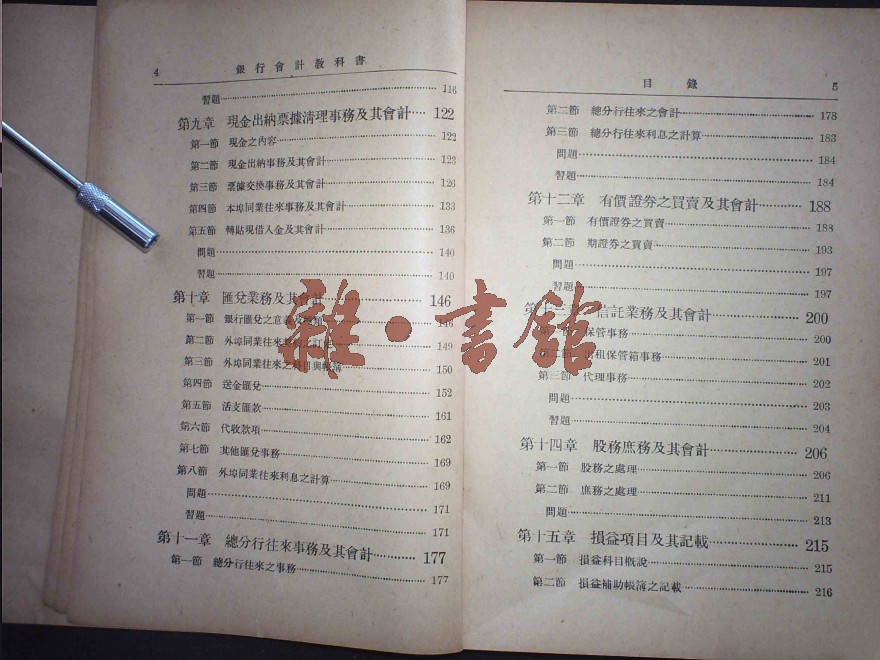 4 銀行會計教科書
習題 116
第九章 現金出納票據清理事務及其會計 122
第一節 現金之內容 122
第二節 現金出納事務及其會計 123
第三節 票據交換事務及其會計 126
第四節 本埠同業往來事務及其會計 133
第五節 轉貼現借入金及其會計 136
問題 140
習題 140
第十章 匯兌業務及其會計 146
第一節 銀行匯兌之意義及 146
第二節 外埠同業往來 149
第三節 外埠同業往來之科目與帳簿 150
第四節 送金匯兌 152
第五節 活支匯款 161
第六節 代收款項 162
第七節 其他匯兌事務 169
第八節 外埠同業往來利息之計算 169
問題 171
習題 171
第十一章 總分行往來事務及其會計 177
第一節 總分行往來之事務 177
目錄 5
第二節 總分行往來之會計 178
第三節 總分行往來利息之計算 183
問題 184
習題 184
第十二章 有價證券之買賣及其會計 188
第一節 有價證券之買賣 188
第二節 期證券之買賣 193
問題 197
習題 197
第十三章 信託業務及其會計 200
第一節 保管事務 200
第二節 出租保管箱事務 201
第三節 代理事務 202
問題 203
習題 204
第十四章 股務庶務及其會計 206
第一節 股務之處理 206
第二節 庶務之處理 211
問題 213
第十五章 損益項目及其記載 215
第一節 損益科目概說 215
第二節 損益補助帳簿之記載 216
雜·書館